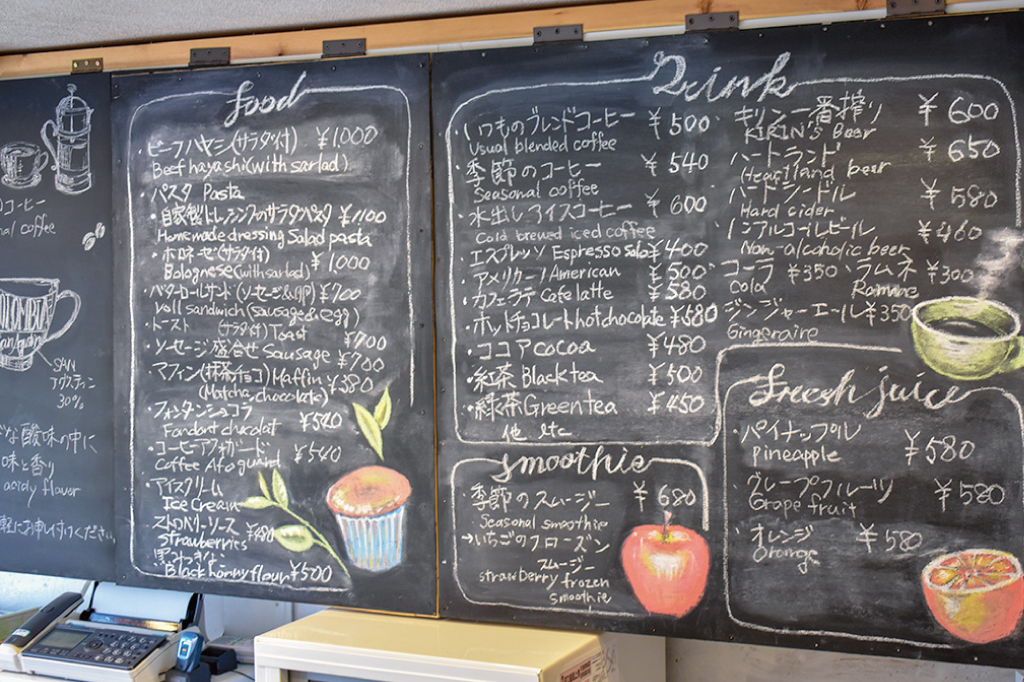 コーヒー
nal coffee
COLOMBIA
SAN
アグスティン
30%
な酸味の中に
味と香り
acidy flavor
軽にお申し付けください
food
・ビーフハヤシ(サラダ付) ¥1,000
Beef hayashi (with sarlad)
・パスタ Pasta
・自家製ドレッシングのサラダパスタ ¥1100
Homemade dressing Salad pasta
・ボロネーゼ(サラダ付) ¥1,000
Bolognese (with sarlad)
・バターロールサンド(ソーセージ&gg) ¥700
roll sandwich (sausage & egg)
・トースト (サラダ付) Toast ¥700
・ソーセージ盛合せ Sausage ¥700
・マフィン(抹茶チョコ) Maffin ¥380
(Matcha, chocolate)
・フォンダンショコラ ¥540
Fondant chocolat
・コーヒーアフォガード ¥540
Coffee Afoguard
・アイスクリーム
Ice Cream
ストロベリーソース ¥480
strawberries
黒みつきなこ
Black honny flour ¥500
Drink
・いつものブレンドコーヒー ¥500
Usual blended coffee
・季節のコーヒー ¥540
Seasonal coffee
・水出しアイスコーヒー ¥600
Cold brewed iced coffee
・エスプレッソ Espresso solo ¥400
・アメリカーノ American ¥500
・カフェラテ Cafe latte ¥580
・ホットチョコレート hot chocolate ¥680
・ココア cocoa ¥480
・紅茶 Black tea ¥500
・緑茶 Green tea ¥450
他 etc
キリン一番搾り ¥600
KIRIN'S Beer
・ハートランド ¥650
Heartland beer
・ハードシードル ¥580
Hard cider
・ノンアルコールビール ¥460
Non-alcoholic beer
・コーラ ¥350 ・ラムネ ¥300
Cola Ramune
・ジンジャーエール ¥350
Gingeraire
smoothie
・季節のスムージー ¥680
Seasonal smoothie
→いちごのフローズン
スムージー
strawberry frozen
smoothie
Fresh juice
・パイナップル ¥580
pineapple
・グレープフルーツ ¥580
Grape fruit
・オレンジ ¥580
Orange